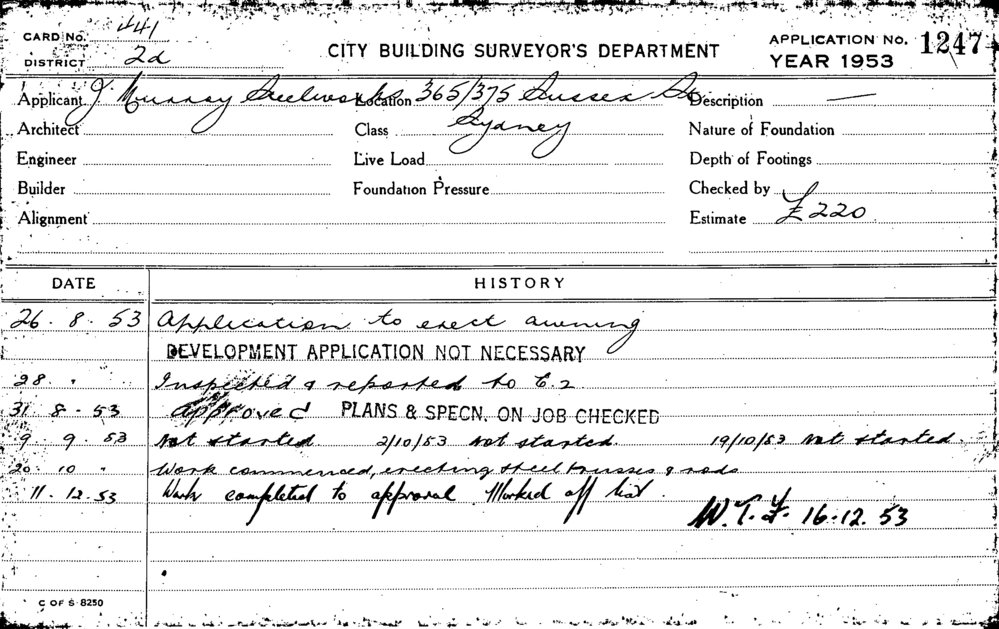 CARD No. 441
DISTRICT 2d
CITY BUILDING SURVEYOR'S DEPARTMENT
APPLICATION No. 1247
YEAR 1953
Applicant J Murray Steelworks Location 365/375 Sussex St Description —
Architect Class Sydney Nature of Foundation
Engineer Live Load Depth of Footings
Builder Foundation Pressure Checked by
Alignment Estimate £220
DATE HISTORY
26. 8. 53 Application to erect awning
DEVELOPMENT APPLICATION NOT NECESSARY
28. " Inspected & reported to C.2
31 8. 53 approved PLANS & SPECN. ON JOB CHECKED
9. 9. 53 Not started 2/10/53 Not started. 19/10/53 Not started.
20. 10 " Work commenced, erecting steel trusses & rods
11. 12. 53 Work completed to approval. Marked off list.
W. T. 16.12.53
C OF S 8250